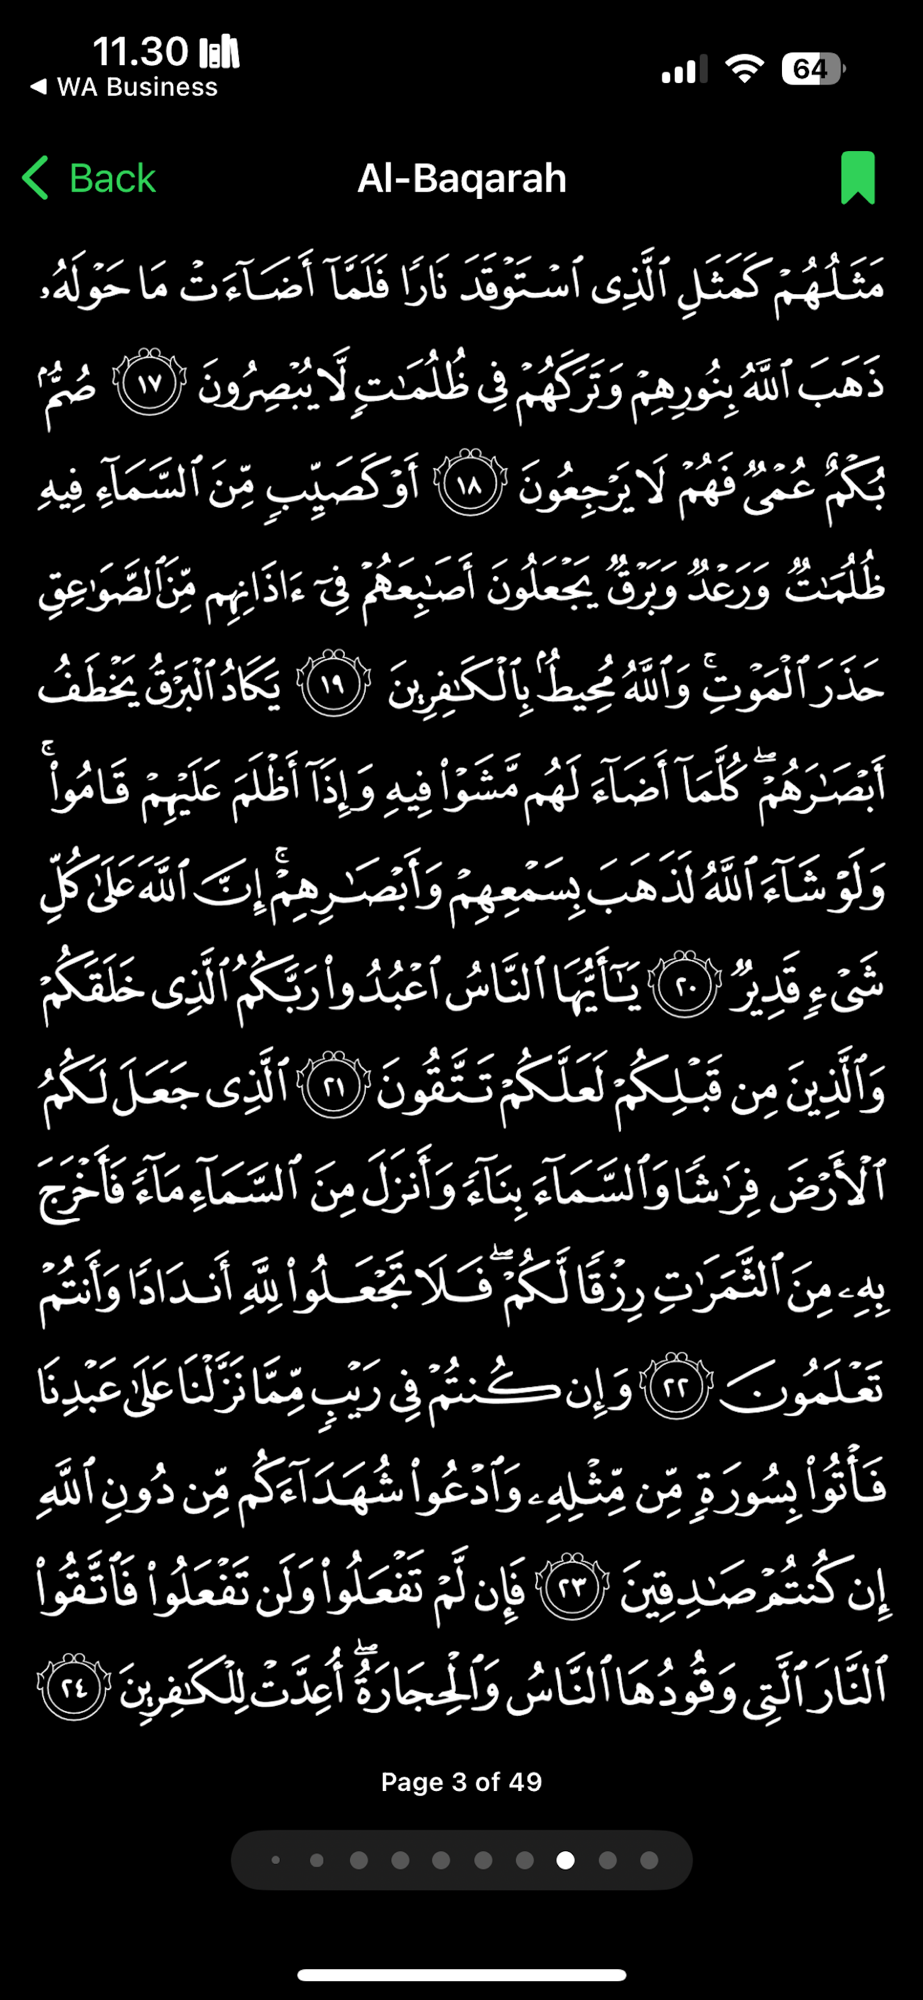 11.30
WA Business
64
Back
Al-Baqarah
مَثَلُهُمْ كَمَثَلِ ٱلَّذِى ٱسْتَوْقَدَ نَارًا فَلَمَّآ أَضَآءَتْ مَا حَوْلَهُۥ
ذَهَبَ ٱللَّهُ بِنُورِهِمْ وَتَرَكَهُمْ فِى ظُلُمَـٰتٍ لَّا يُبْصِرُونَ ١٧ صُمٌّۢ
بُكْمٌ عُمْىٌ فَهُمْ لَا يَرْجِعُونَ ١٨ أَوْ كَصَيِّبٍ مِّنَ ٱلسَّمَآءِ فِيهِ
ظُلُمَـٰتٌ وَرَعْدٌ وَبَرْقٌ يَجْعَلُونَ أَصَـٰبِعَهُمْ فِىٓ ءَاذَانِهِم مِّنَ ٱلصَّوَٰعِقِ
حَذَرَ ٱلْمَوْتِ ۚ وَٱللَّهُ مُحِيطٌۢ بِٱلْكَـٰفِرِينَ ١٩ يَكَادُ ٱلْبَرْقُ يَخْطَفُ
أَبْصَـٰرَهُمْ ۖ كُلَّمَآ أَضَآءَ لَهُم مَّشَوْا۟ فِيهِ وَإِذَآ أَظْلَمَ عَلَيْهِمْ قَامُوا۟ ۚ
وَلَوْ شَآءَ ٱللَّهُ لَذَهَبَ بِسَمْعِهِمْ وَأَبْصَـٰرِهِمْ ۚ إِنَّ ٱللَّهَ عَلَىٰ كُلِّ
شَىْءٍ قَدِيرٌ ٢٠ يَـٰٓأَيُّهَا ٱلنَّاسُ ٱعْبُدُوا۟ رَبَّكُمُ ٱلَّذِى خَلَقَكُمْ
وَٱلَّذِينَ مِن قَبْلِكُمْ لَعَلَّكُمْ تَتَّقُونَ ٢١ ٱلَّذِى جَعَلَ لَكُمُ
ٱلْأَرْضَ فِرَٰشًا وَٱلسَّمَآءَ بِنَآءً وَأَنزَلَ مِنَ ٱلسَّمَآءِ مَآءً فَأَخْرَجَ
بِهِۦ مِنَ ٱلثَّمَرَٰتِ رِزْقًا لَّكُمْ ۖ فَلَا تَجْعَلُوا۟ لِلَّهِ أَندَادًا وَأَنتُمْ
تَعْلَمُونَ ٢٢ وَإِن كُنتُمْ فِى رَيْبٍ مِّمَّا نَزَّلْنَا عَلَىٰ عَبْدِنَا
فَأْتُوا۟ بِسُورَةٍ مِّن مِّثْلِهِۦ وَٱدْعُوا۟ شُهَدَآءَكُم مِّن دُونِ ٱللَّهِ
إِن كُنتُمْ صَـٰدِقِينَ ٢٣ فَإِن لَّمْ تَفْعَلُوا۟ وَلَن تَفْعَلُوا۟ فَٱتَّقُوا۟
ٱلنَّارَ ٱلَّتِى وَقُودُهَا ٱلنَّاسُ وَٱلْحِجَارَةُ ۖ أُعِدَّتْ لِلْكَـٰفِرِينَ ٢٤
Page 3 of 49